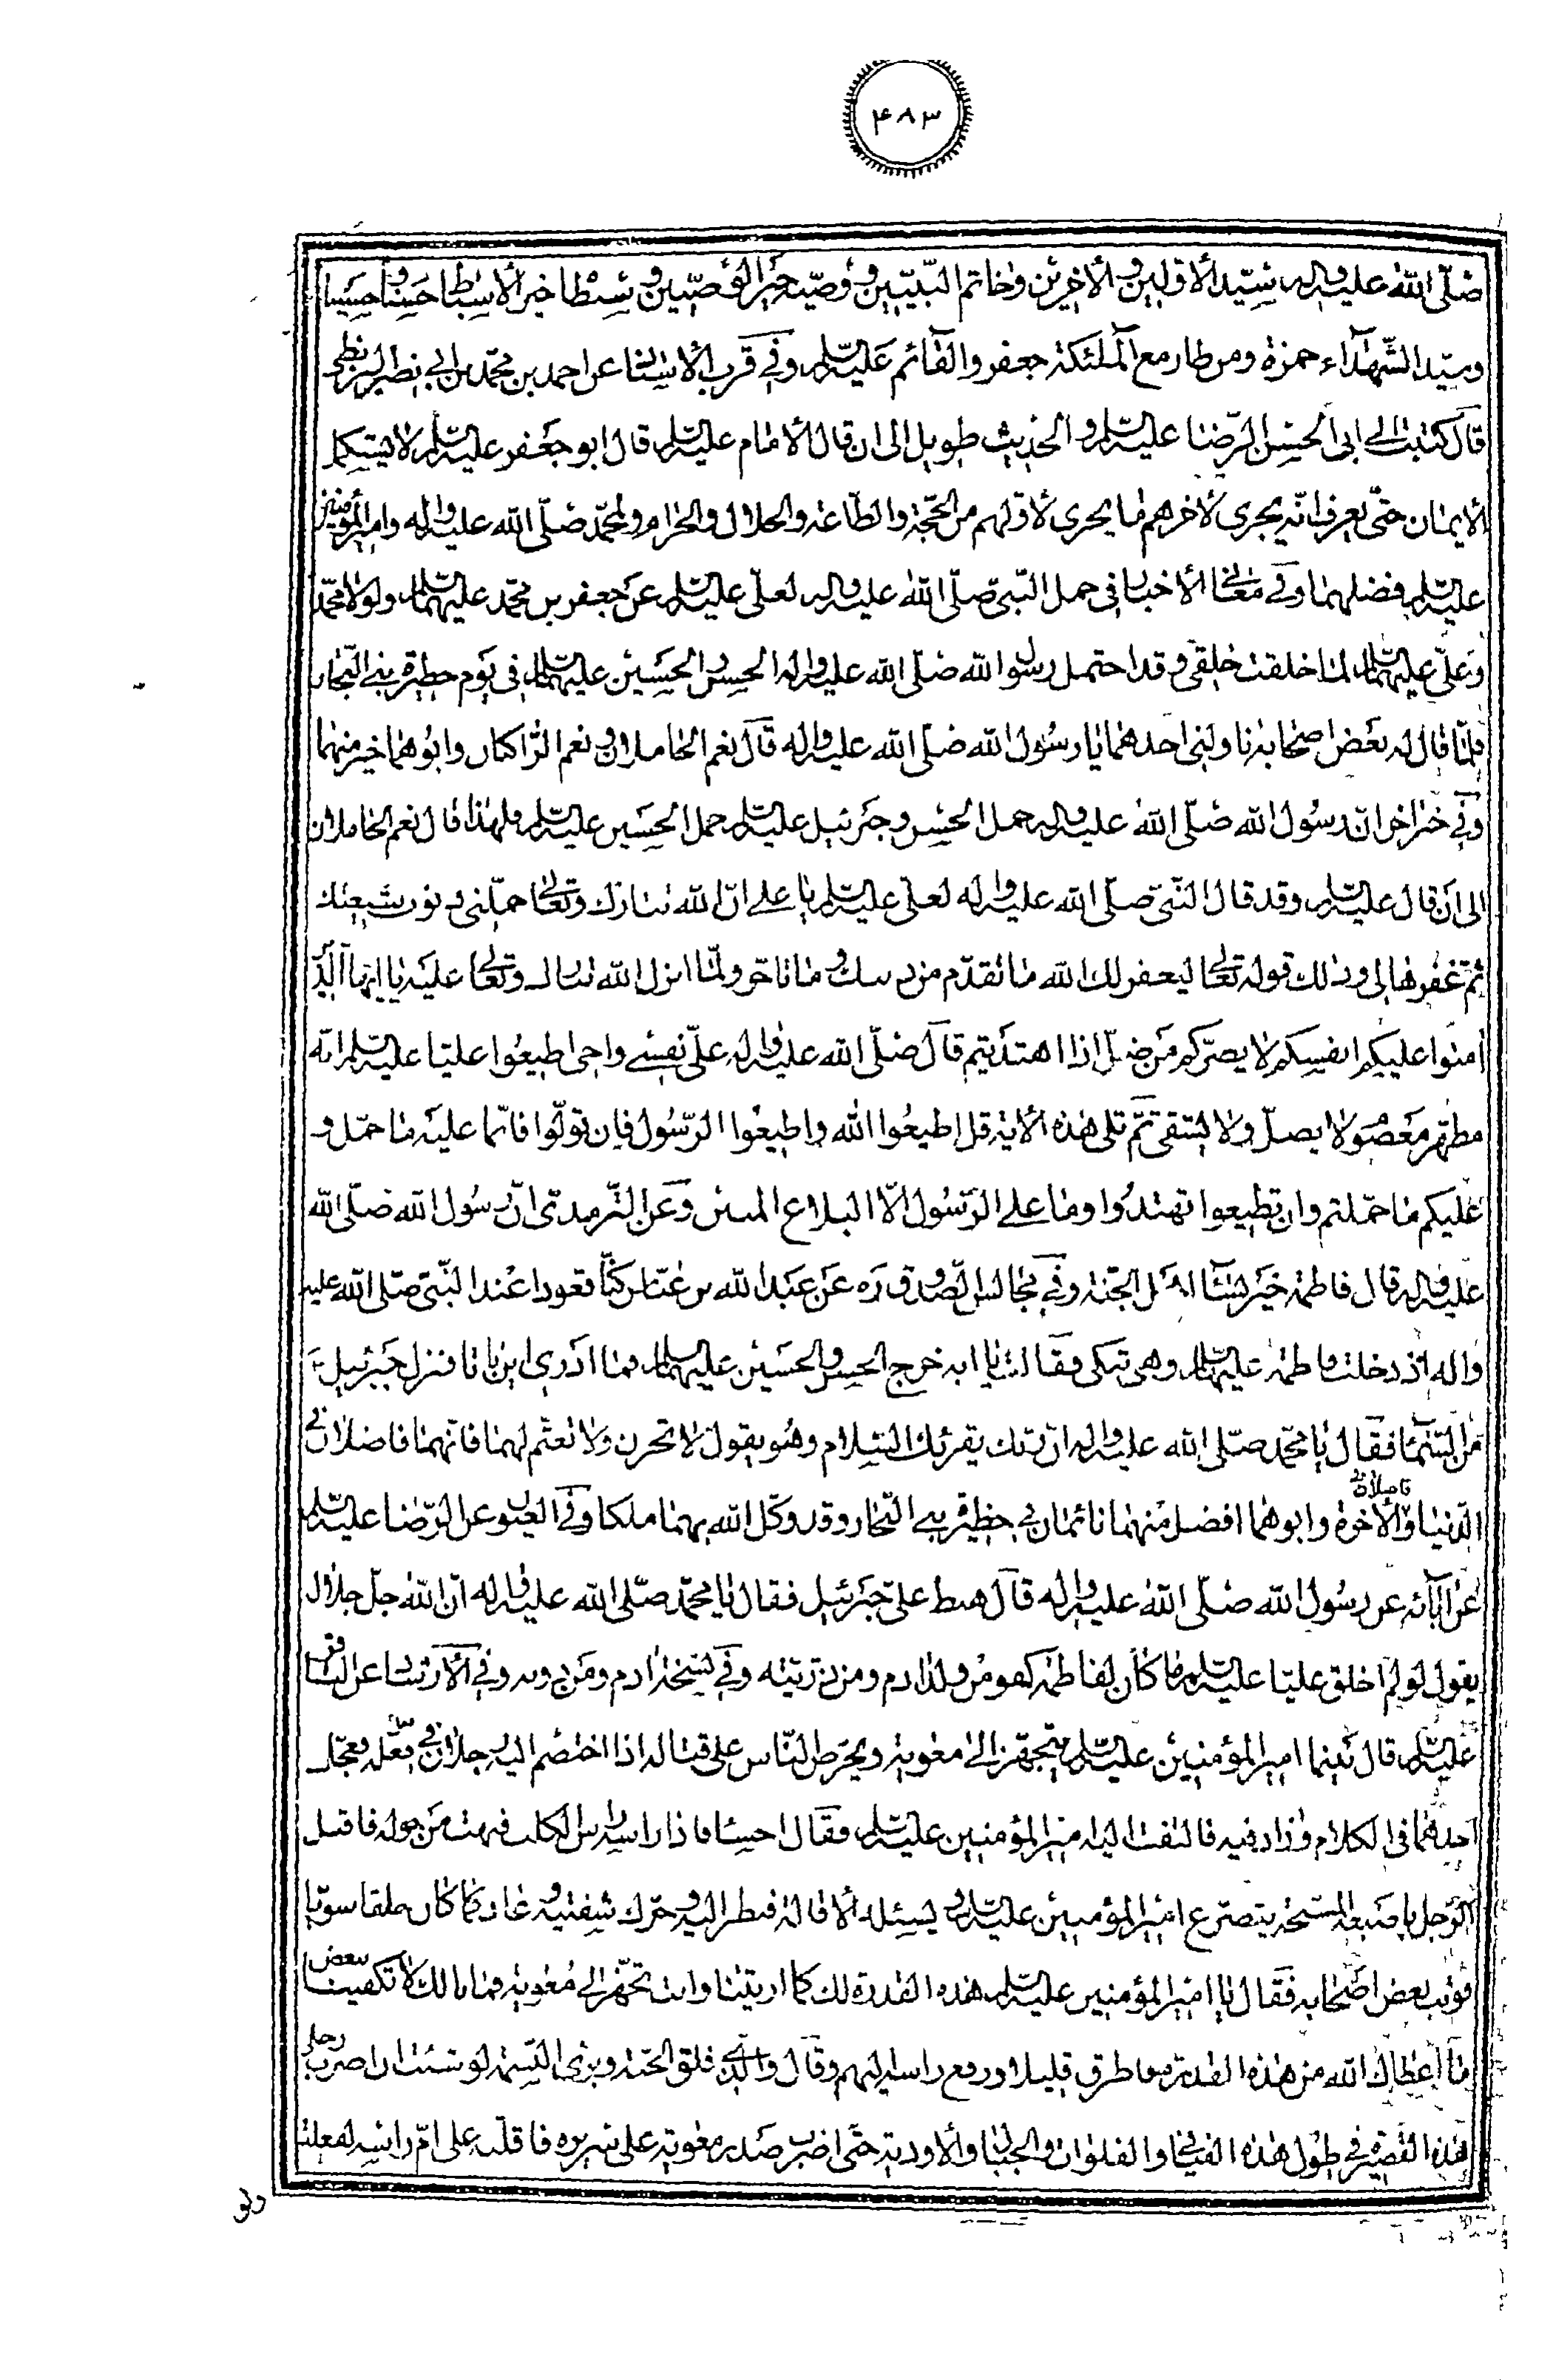 ۴۸۳
صلّى الله عليه واله سيّد الأوّلين والأخرين وخاتم النّبيّين ووصيّه خير الوصيّين وسبطاه خير الأسباط حسنا وحسينا
وسيّد الشّهدآء حمزة ومن طار مع الملئكة جعفر والقآئم عليه السّلم وفي قرب الأسناد عن احمد بن محمّد بن ابي نصر البزنطي
قال كتبت الى ابى الحسن الرّضا عليه السّلم والحديث طويل الى ان قال الأمام عليه السّلم قال ابو جعفر عليه السّلم لا يستكمل
الأيمان حتّى يعرف انّه يجرى لأخرهم ما يجرى لأوّلهم من الحجّة والطّاعة والحلال والحرام ولمحمّد صلّى الله عليه واله وامير المؤمنين
عليه السّلم فضلهما وفي معاني الأخبار في حمل النّبى صلّى الله عليه واله لعلى عليه السّلم عن جعفر بن محمّد عليهما السّلام ولولا محمّد
وعلى عليهما السّلام لما خلقت خلقى وقد احتمل رسول الله صلّى الله عليه واله الحسن والحسين عليهما السّلام في يوم حظيرة بني النّجار
فلمّا قال له بعض اصحابه ناولنى احدهما يا رسول الله صلّى الله عليه واله قال نعم الحاملان ونعم الرّاكبان وابوهما خير منهما
وفي خبر اخر انّ رسول الله صلّى الله عليه واله حمل الحسن وجبرئيل عليه السّلم حمل الحسين عليه السّلم ولهذا قال نعم الحاملان
الى ان قال عليه السّلم وقد قال النّبى صلّى الله عليه واله لعلى عليه السّلم يا على انّ الله تبارك وتعالى حمّلنى ذنوب شيعتك
ثمّ غفرها لى وذلك قوله تعالى ليغفر لك الله ما تقدّم من ذنبك وما تاخر ولمّا انزل الله تبارك وتعالى عليه يا ايّها الّذين
امنوا عليكم انفسكم لا يضرّكم من ضلّ اذا اهتديتم قال صلّى الله عليه واله علىّ نفسى واخى اطيعوا عليّا عليه السّلم انّه
مطهّر معصوم لا يضلّ ولا يشقى ثمّ تلى هذه الأية قل اطيعوا الله واطيعوا الرّسول فان تولّوا فانّما عليه ما حمّل و
عليكم ما حمّلتم وان تطيعوا تهتدوا وما على الرّسول الّا البلاغ المبين وعن التّرمدى انّ رسول الله صلّى الله
عليه واله قال فاطمة خير نسآء اهل الجنّة وفي مجالس الصّدوق ره عن عبد الله بن عبّاس كنّا قعودا عند النّبى صلّى الله عليه
واله اذ دخلت فاطمة عليها السّلام وهى تبكى فقالت يا ابه خرج الحسن والحسين عليهما السّلام فما ادرى اين باتا فنزل جبرئيل
من السّمآء فقال يا محمّد صلّى الله عليه واله انّ ربّك يقرئك السّلام وهو يقول لا تحزن ولا تغتمّ لهما فانّهما فاضلان في
الدّنيا والأخرة فاضلان في وابوهما افضل منهما نائمان في حظيرة بني النّجار وقد وكّل الله بهما ملكا وفي العيون عن الرّضا عليه السّلم
عن آبآئه عن رسول الله صلّى الله عليه واله قال هبط علىّ جبرئيل فقال يا محمّد صلّى الله عليه واله انّ الله جلّ جلاله
يقول لو لم اخلق عليّا عليه السّلم ما كان لفاطمة كفو من ولد ادم ومن ذرّيته وفي نسخة ادم ومن دونه وفي الأرشاد عن الصّادق
عليه السّلم قال بينما امير المؤمنين عليه السّلم يتجهّز الى معوية ويحرّض النّاس على قتاله اذا اختصم اليه رجلان في فعله فعجّل
احدهما في الكلام وزاد فيه فالتفت اليه امير المؤمنين عليه السّلم فقال اخسا فاذا راسه راس الكلب فبهت من حوله فاقبل
الرّجل باصبعه المسبّحة يتضرّع امير المؤمنين عليه السّلم ويسئله الأقالة فنظر اليه وحرّك شفتيه فعاد كما كان خلقا سويّا
فوثب بعض اصحابه فقال يا امير المؤمنين عليه السّلم هذه القدرة لك كما اريتنا وانت تجهّز الى معوية فما بالك لا تكفينا ببعض
ما اعطاك الله من هذه القدرة فاطرق قليلا ورفع راسه اليهم وقال والّذى فلق الحبّة وبرئ النّسمة لو شئت ان اضرب برجلى
هذه القصيرة في طول هذه الفيافي والفلوات والجبال والأودية حتّى اضرب صدر معوية على سريره فاقلّبه على امّ راسه لفعلت
ولو